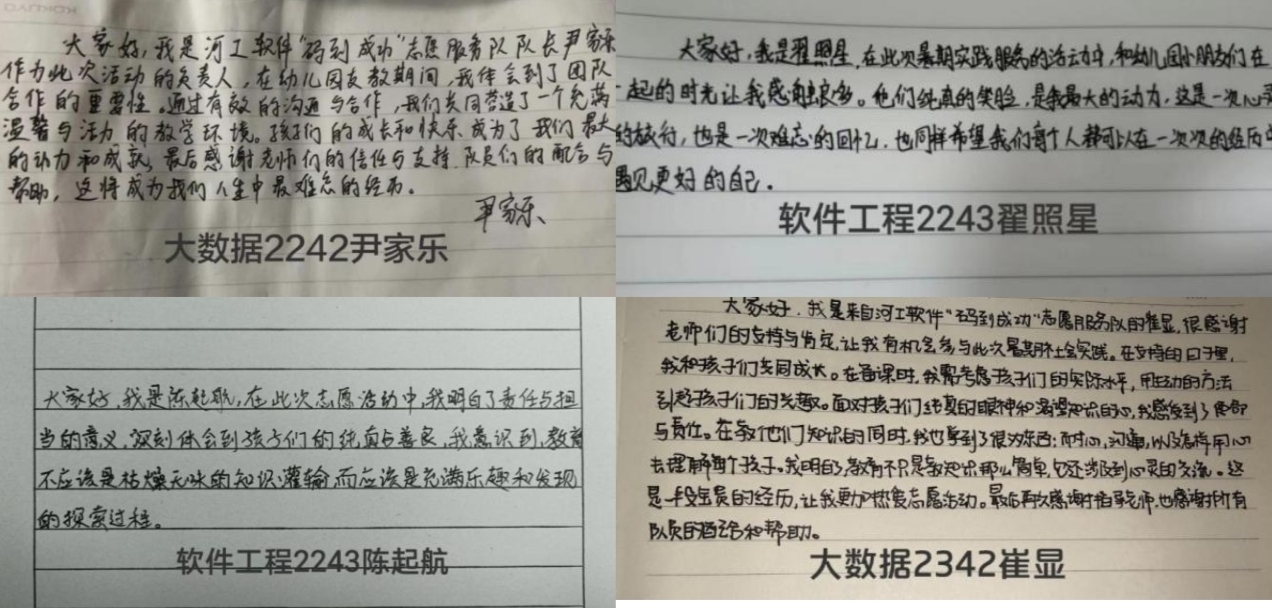 大家好，我是河工软件“码到成功”志愿服务队队长尹家乐
作为此次活动的负责人，在幼儿园支教期间，我体会到了团队
合作的重要性。通过有效的沟通与合作，我们共同营造了一个充满
温馨与活力的教学环境。孩子们的成长和快乐成为了我们最大
的动力和成就。最后感谢老师们的信任与支持，队员们的配合与
帮助，这将成为我们人生中最难忘的经历。
尹家乐
大数据2242尹家乐
大家好，我是翟照星，在此次暑期实践服务的活动中，和幼儿园小朋友们在
一起的时光让我感触良多。他们纯真的笑脸，是我最大的动力，这是一次心灵
的旅行，也是一次难忘的回忆，也同样希望我们每个人都可以在一次次的经历中
遇见更好的自己。
软件工程2243翟照星
大家好，我是陈起航，在此次志愿活动中，我明白了责任与担
当的意义，深刻体会到孩子们的纯真与善良，我意识到，教育
不应该是枯燥无味的知识灌输，而应该是充满乐趣和发现
的探索过程。
软件工程2243陈起航
大家好，我是来自河工软件“码到成功”志愿服务队的崔显，很感谢
老师们的支持与肯定，让我有机会参与此次暑期社会实践。在支持的日子里，
我和孩子们共同成长。在备课时，我需考虑孩子们的实际水平，用生动的方法
引起孩子们的兴趣。面对孩子们纯真的眼神和渴望知识的心，我感受到了使命
与责任。在教他们知识的同时，我也学到了很多东西：耐心，沟通，以及怎样用心
去理解每个孩子。我明白了教育不只是教知识那么简单，它还涉及到心灵的交流。这
是一段宝贵的经历，让我更加热爱志愿活动。最后再次感谢指导老师，也感谢所有
队员的配合和帮助。
大数据2342崔显